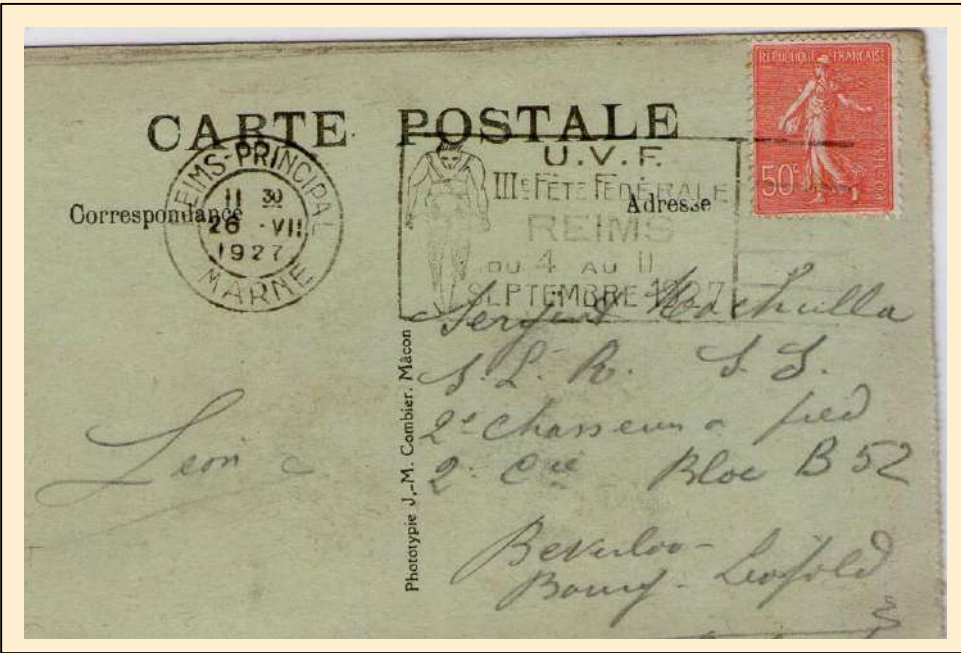 CARTE POSTALE
REPUBLIQUE FRANÇAISE
50c
POSTES
REIMS-PRINCIPAL
11 30
26 - VII
1927
MARNE
U.V.F.
IIIe FÊTE FÉDÉRALE
REIMS
DU 4 AU 11
SEPTEMBRE 1927
Correspondance
Adresse
Phototypie J.-M. Combier. Mâcon
Leon
Sergent
S. L. R. S. S.
2e Chasseurs a pied
2e Cie Bloc B 52
Beverloo-
Bourg-Léopold